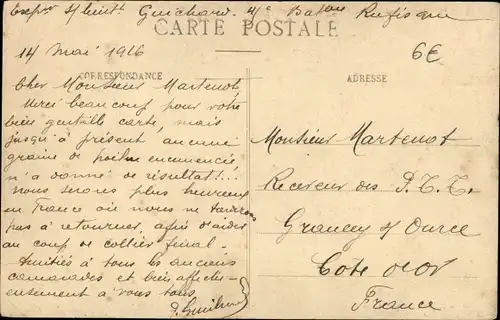 Expr S/lieut Guichard. 4e Baton Rufisque
CARTE POSTALE
6€
14 Mai 1916
CORRESPONDANCE
ADRESSE
Cher Monsieur Martenot,
Merci beaucoup pour votre
bien gentille carte, mais
jusqu'à présent aucune
graine de poilu
n'a donné de résultat!!!
Nous serons plus heureux
en France où nous ne tarderons
pas à retourner, afin d'aider
au coup de collier final.
Amitiés à tous les anciens
camarades et bien affectu-
eusement à vous tous
Monsieur Martenot
Receveur des P.T.T.
Grancey s/ Ource
Côte d'Or
France